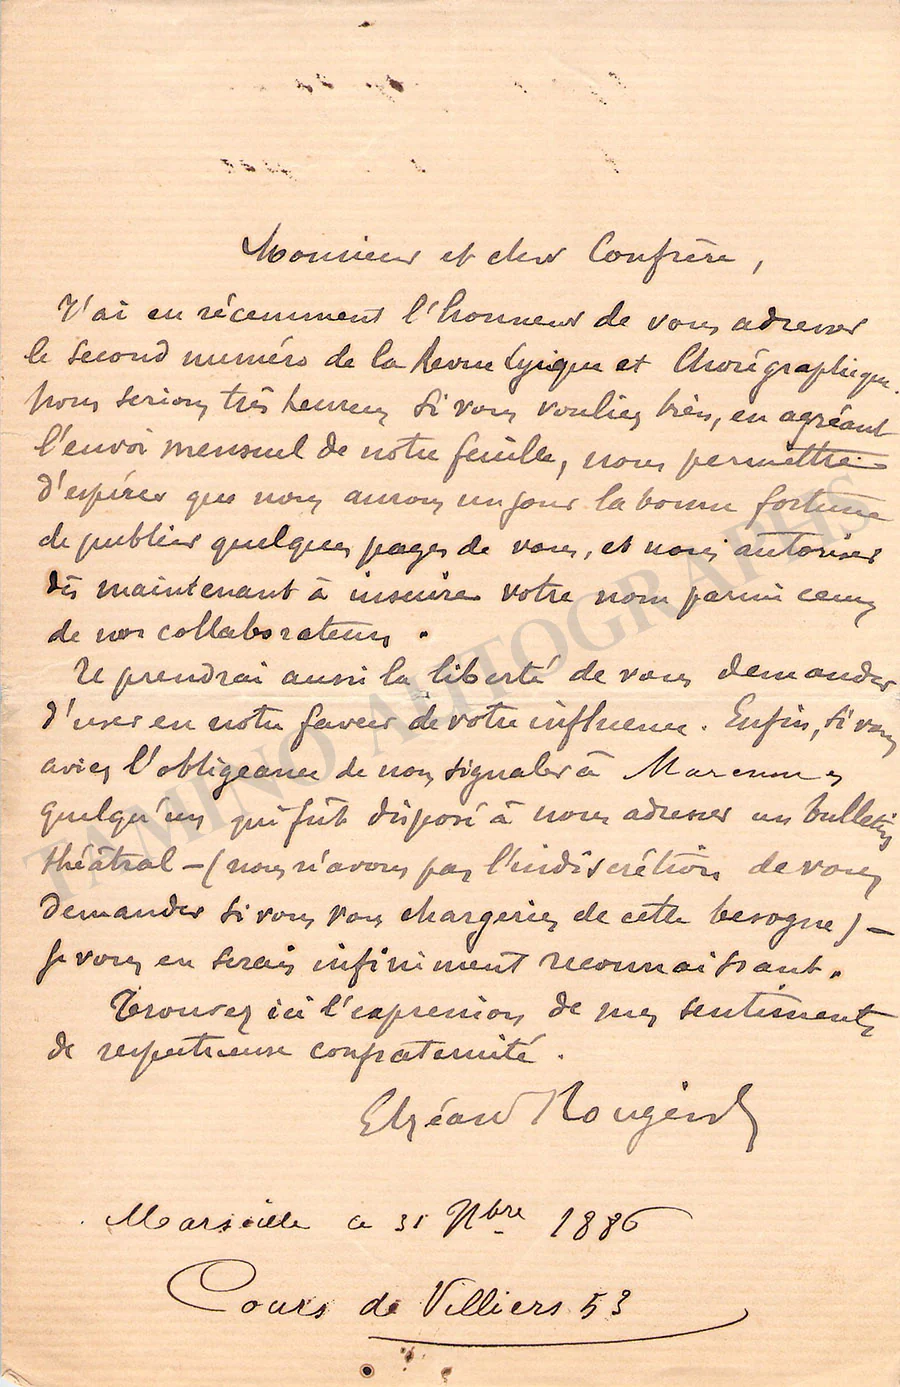 Monsieur et cher Confrère,
J'ai eu récemment l'honneur de vous adresser
le second numéro de la Revue Lyrique et Chorégraphique.
Nous serions très heureux si vous vouliez bien, en agréant
l'envoi mensuel de notre feuille, nous permettre
d'espérer que nous aurons un jour la bonne fortune
de publier quelques pages de vous, et nous autoriser
dès maintenant à inscrire votre nom parmi ceux
de nos collaborateurs.
Je prendrai aussi la liberté de vous demander
d'user en notre faveur de votre influence. Enfin, si vous
aviez l'obligeance de nous signaler à
quelqu'un qui fût disposé à nous adresser un bulletin
théâtral – (nous n'avons pas l'indiscrétion de vous
demander si vous vous chargeriez de cette besogne) –
je vous en serais infiniment reconnaissant.
Trouvez ici l'expression de mes sentiments
de respectueuse confraternité.
Elzéard Rougier
Marseille ce 31 Nbre 1886
Cours de Villiers 53
TAMINO AUTOGRAPHS